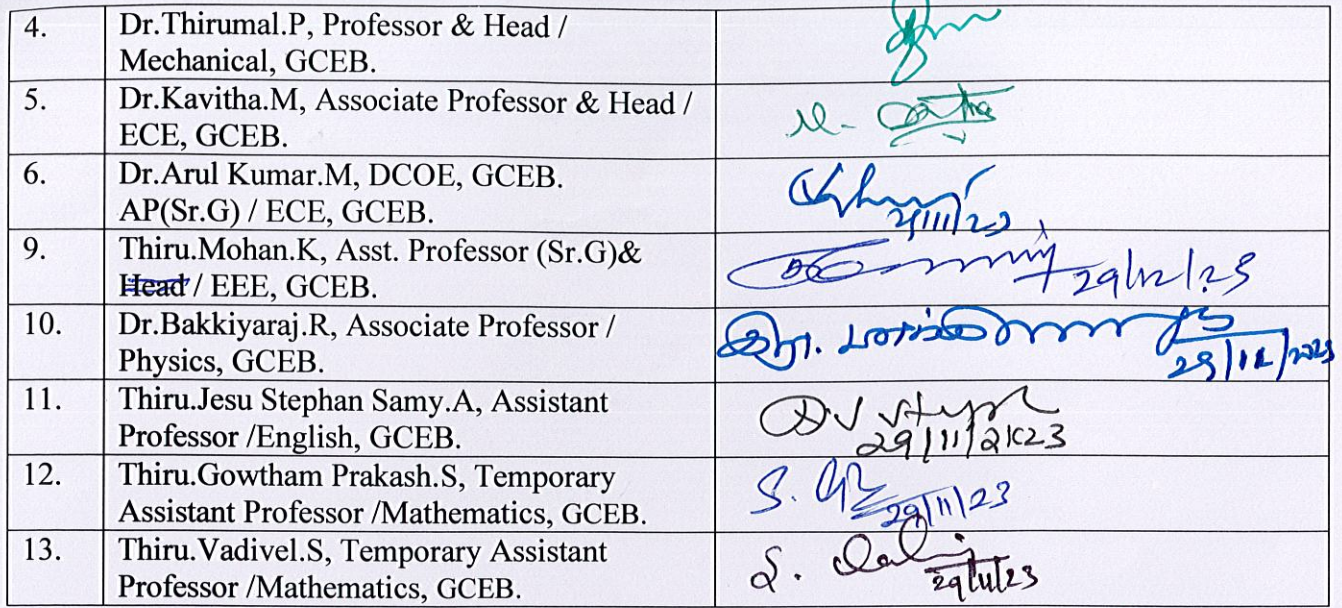 4. Dr.Thirumal.P, Professor & Head /
Mechanical, GCEB.
5. Dr.Kavitha.M, Associate Professor & Head /
ECE, GCEB.
6. Dr.Arul Kumar.M, DCOE, GCEB.
AP(Sr.G) / ECE, GCEB.
9. Thiru.Mohan.K, Asst. Professor (Sr.G)&
Head / EEE, GCEB.
29/12/23
10. Dr.Bakkiyaraj.R, Associate Professor /
Physics, GCEB.
11. Thiru.Jesu Stephan Samy.A, Assistant
Professor /English, GCEB.
12. Thiru.Gowtham Prakash.S, Temporary
Assistant Professor /Mathematics, GCEB.
29/11/23
13. Thiru.Vadivel.S, Temporary Assistant
Professor /Mathematics, GCEB.
29/11/23